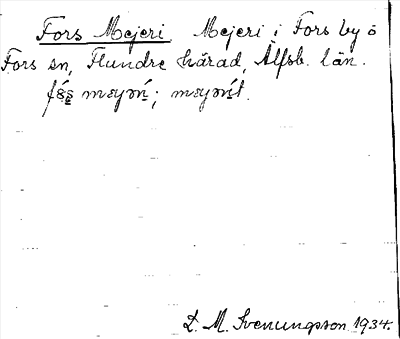 Fors Mejeri Mejeri i Fors by å
Fors sn, Flundre härad, Älfsb. län.
mejeri; mejerit.
L. M. Svenungsson 1934.